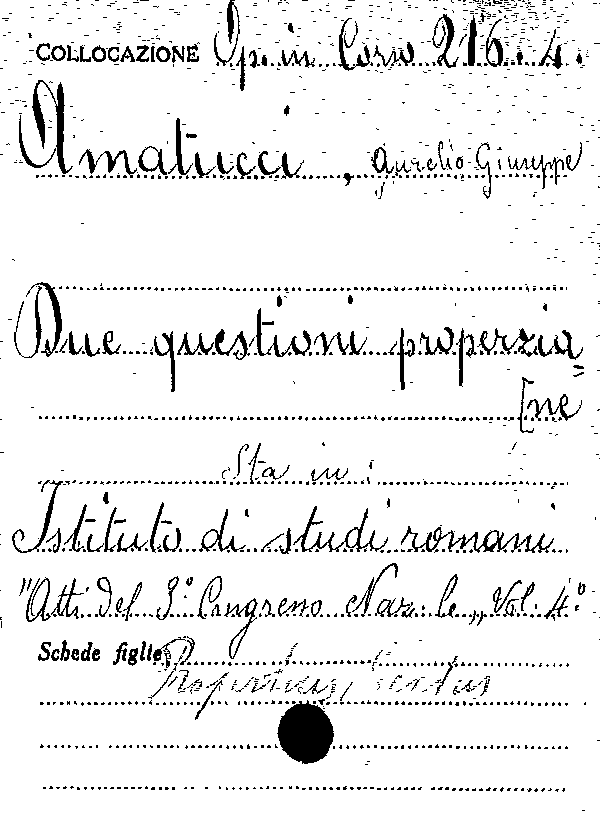 COLLOCAZIONE Op. in Corso 216. 4.
Amatucci, Aurelio Giuseppe
Due questioni properzia=
[ne
Sta in:
Istituto di studi romani
"Atti del 3° Congresso Naz.le „ Vol. 4°
Schede figlie
Propertius,